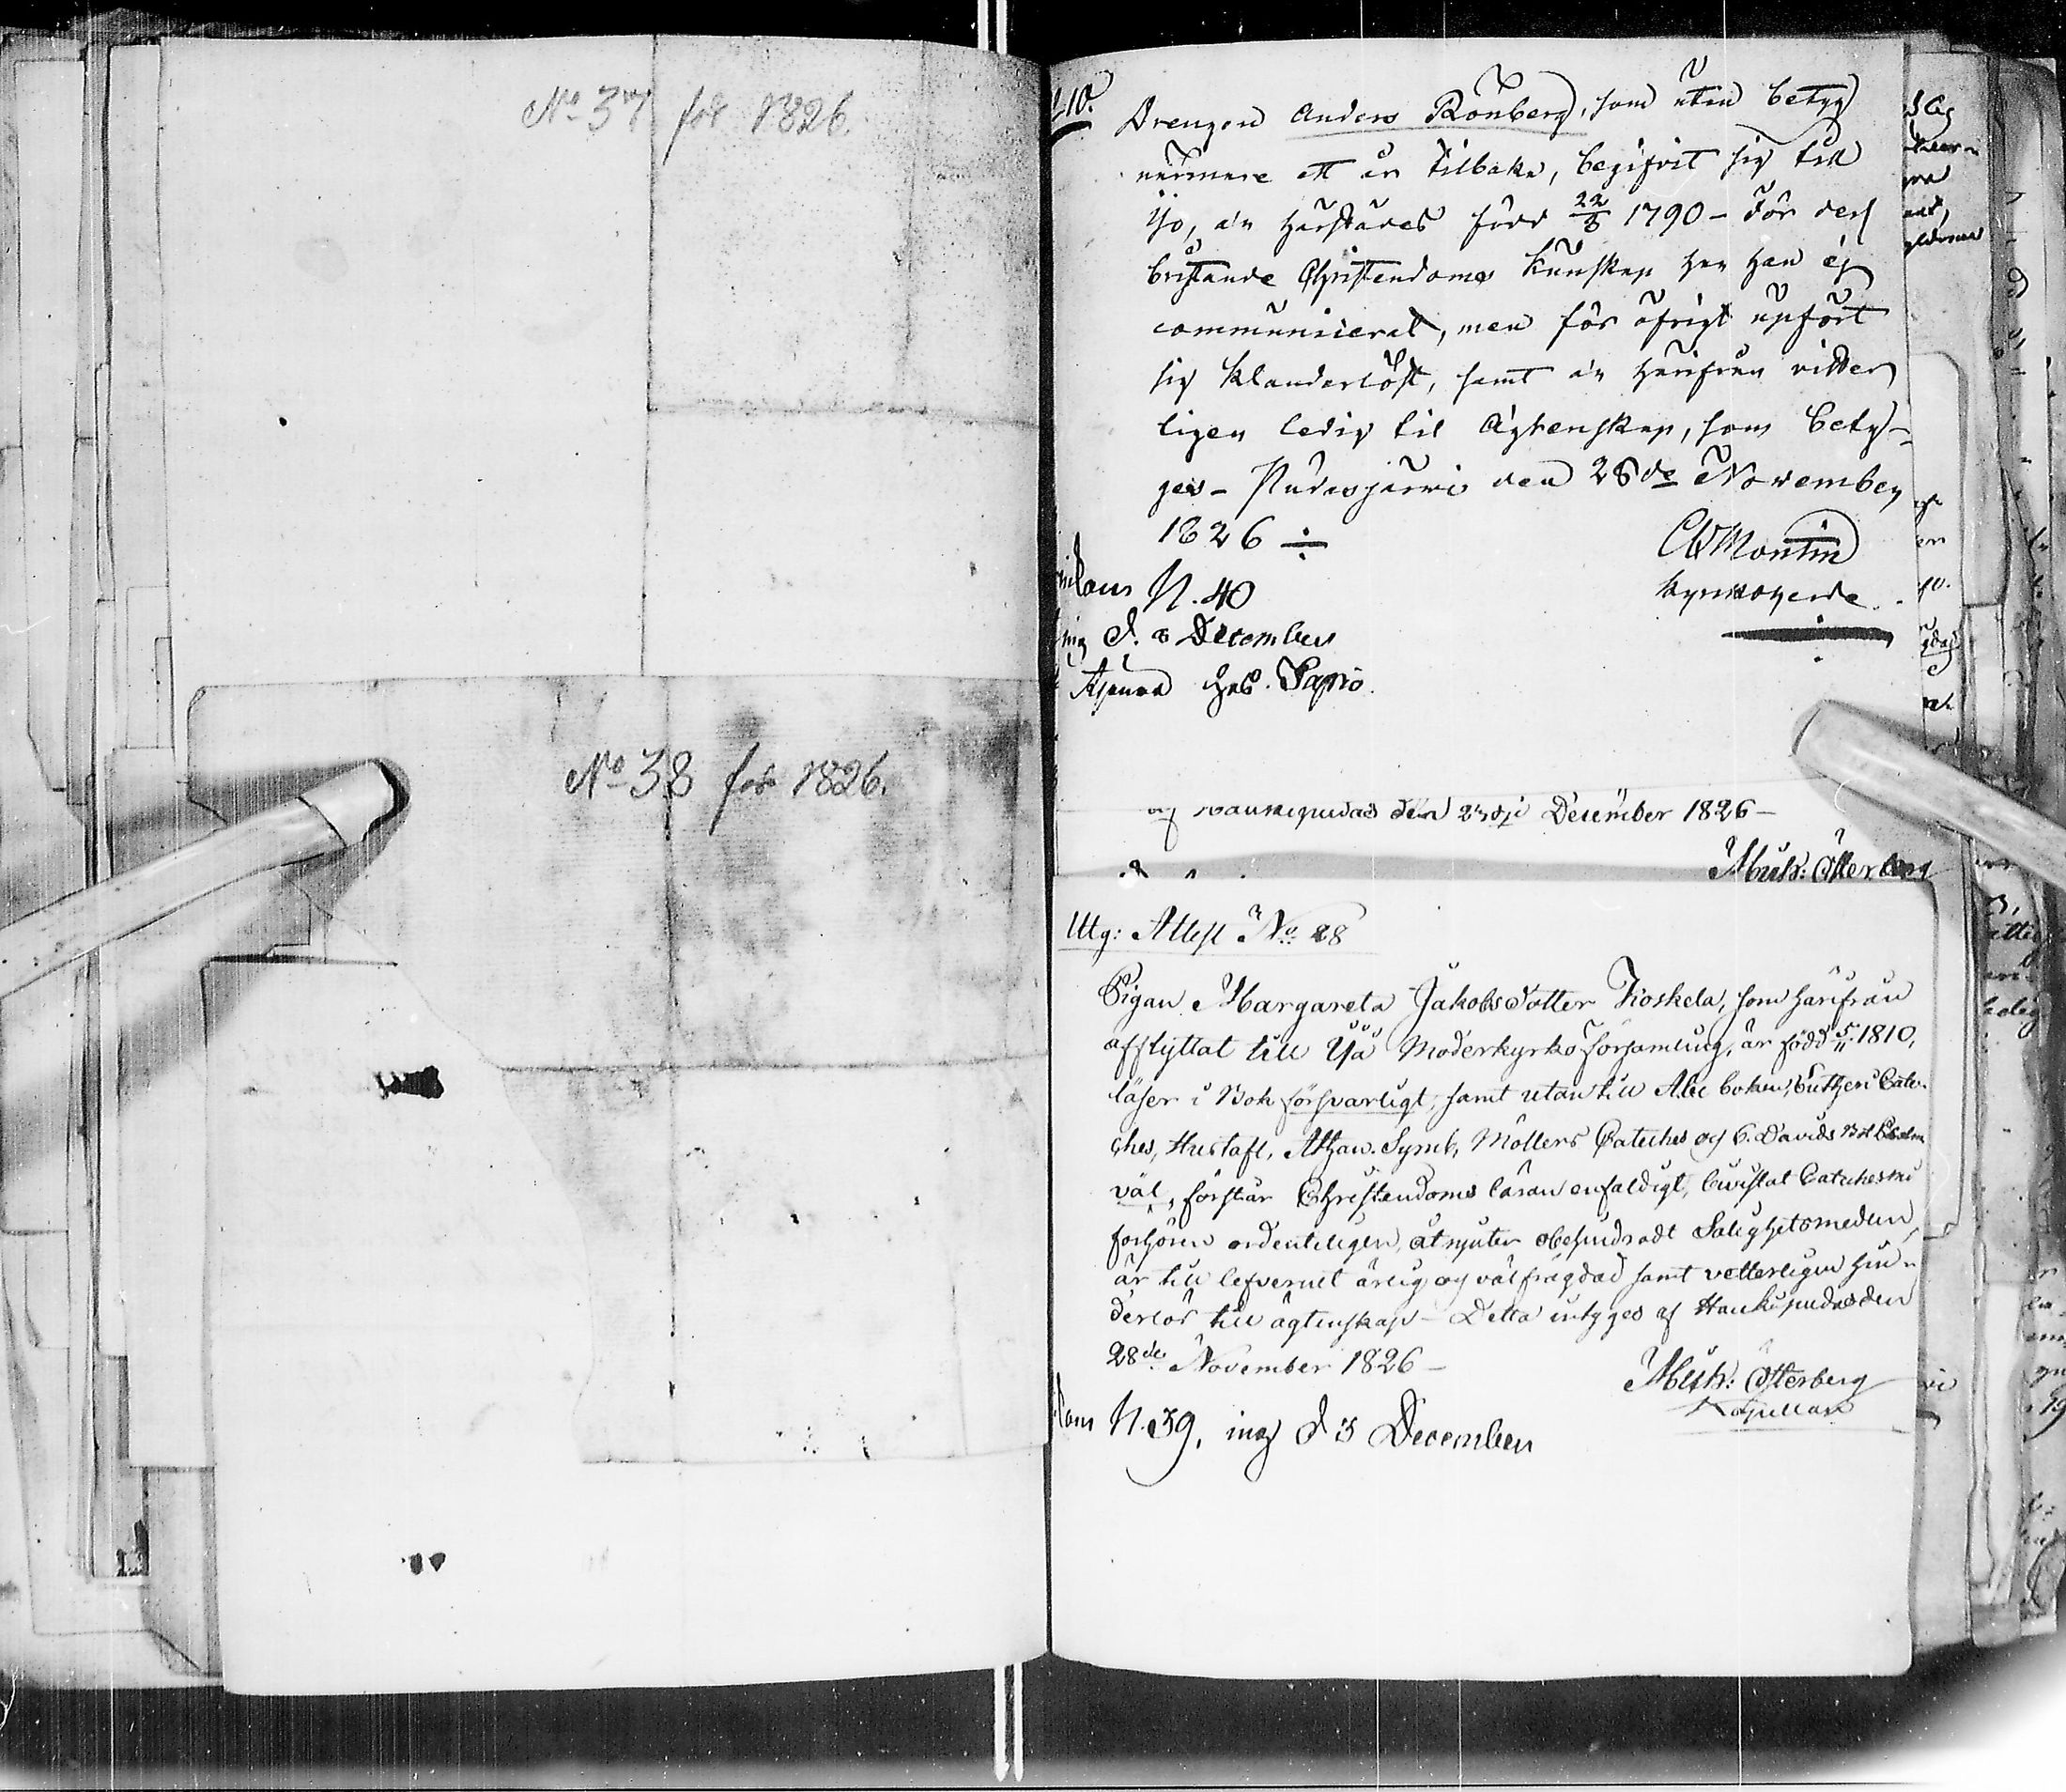 No 37 för 1826.
No 38 för 1826.
210.
Drengen Anders Rönberg, som utan betyg
närmare ett år tilbaka, begifvit sig till
Ijo, är härstädes född 22/8 1790 – För dess
bristande Christendoms Kunskap har han ej
communicerat, men för öfrigt upfört
sig Klanderlöst, samt är härifrån vitter
ligen ledig til Ägtenskap, som bety-
ges – Pudasjärvi den 28de November
1826 ÷
CWMontin
Kyrkoherde
N. 40
d. 8 December
Hab. Sapio
Haukipudas den 23dje December 1826 –
Mich: Österberg
Utg: Attest No 28
Pigan Margareta Jakobsdotter Koskela, som härifrån
afflyttat till Ijå Moderkyrko Församling, är född 5/11 1810,
läser i Bok försvarligt, samt utantill Abc boken, Lutheri Cate-
ches, Hustafl, Athan. Symb, Möllers Cateches och 6. Davids Bot Psalm
väl, förstår Christendoms läran enfaldigt, bevistat Catechesmi
förhören ordenteligen, åtnjuter obehindradt Salighetsmedlen
är till lefvernet ärlig och välfrägdad samt vetterligen hin-
derlös till ägtenskap – Detta intyges af Haukipudas den
28de November 1826 –
Mich: Österberg
Kapellan
N. 39, ing d 3 December